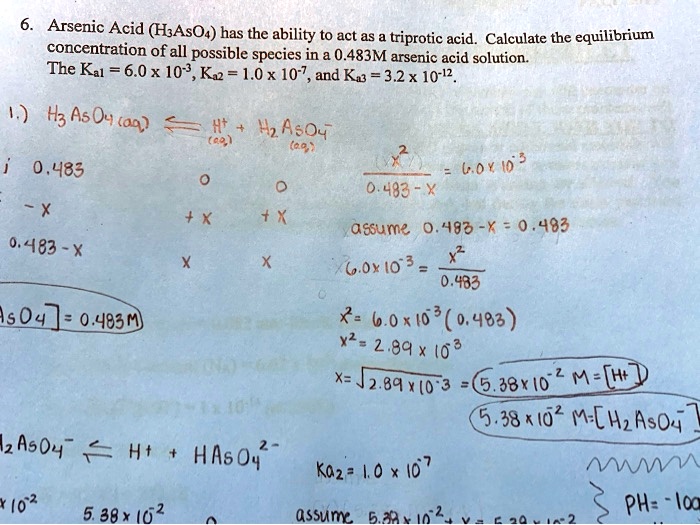 6. Arsenic Acid (H₃AsO₄) has the ability to act as a triprotic acid. Calculate the equilibrium
concentration of all possible species in a 0.483M arsenic acid solution.
The Kₐ₁ = 6.0 x 10⁻³, Kₐ₂ = 1.0 x 10⁻⁷, and Kₐ₃ = 3.2 x 10⁻¹².
1.) H₃AsO₄(aq) ⇌ H⁺(aq) + H₂AsO₄⁻(aq)
i 0.483 0 0
-x +x +x
0.483-x x x
x² / 0.483-x = 6.0x10⁻³
assume 0.483-x = 0.483
6.0x10⁻³ = x² / 0.483
AsO₄] = 0.483M
x² = 6.0x10⁻³(0.483)
x² = 2.89 x 10⁻³
x = √2.89x10⁻³ = 5.38x10⁻² M = [H⁺]
5.38x10⁻² M = [H₂AsO₄⁻]
H₂AsO₄⁻ ⇌ H⁺ + HAsO₄²⁻
Ka₂ = 1.0 x 10⁻⁷
x10⁻² 5.38x10⁻² 0
assume 5.38x10⁻² + x = 5.38x10⁻²
PH = -log